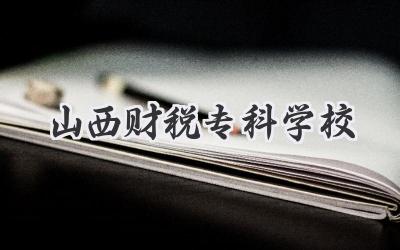 山西财税专科学校